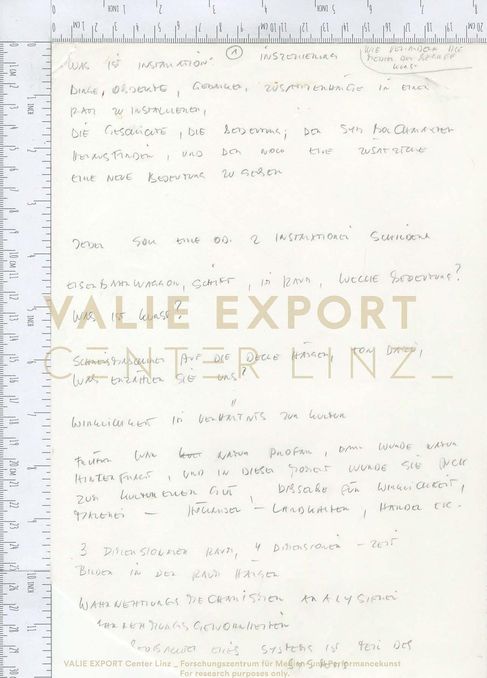 WAS IST INSTALLATION. ① INSZENIERUNG
DINGE, OBJEKTE, GEDANKEN, ZUSAMMENHÄNGE IN EINEM
RAUM ZU INSTALLIEREN,
DIE GESCHICHTE, DIE BEDEUTUNG, DEN SYMBOLCHARAKTER
HERAUSFINDEN, UND DEM NOCH EINE ZUSÄTZLICHE
EINE NEUE BEDEUTUNG ZU GEBEN
JEDER SOLL EINE OD. 2 INSTALLATIONEN SCHILDERN
EISENBAHNWAGGON, SCHIFF, IM RAUM, WELCHE BEDEUTUNG?
VALIE EXPORT
WAS IST KUNST?
CENTER LINZ_
AUF DIE DECKE HÄNGEN,
WAS ERZÄHLEN SIE UNS?
WIRKLICHKEIT IM VERHÄLTNIS ZUR KULTUR
FRÜHER WAR NATUR PROFAN, DANN WURDE NATUR
HINTERFRAGT, UND IN DIESEM MOMENT WURDE SIE AUCH
ZUM KULTURELLEN GUT, DASSELBE FÜR WIRKLICHKEIT,
MALEREI – HOLLÄNDER – LANDSCHAFTEN, HANDEL ETC.
3 DIMENSIONALER RAUM, 4 DIMENSIONEN – ZEIT
BILDER IN DEN RAUM HÄNGEN
WAHRNEHMUNGSMECHANISMEN ANALYSIEREN
WAHRNEHMUNGSGEWOHNHEITEN
BEOBACHTER EINES SYSTEMS IST TEIL DES
SYSTEMS
VALIE EXPORT Center Linz _ Forschungszentrum für Medien- und Performancekunst
For research purposes only.